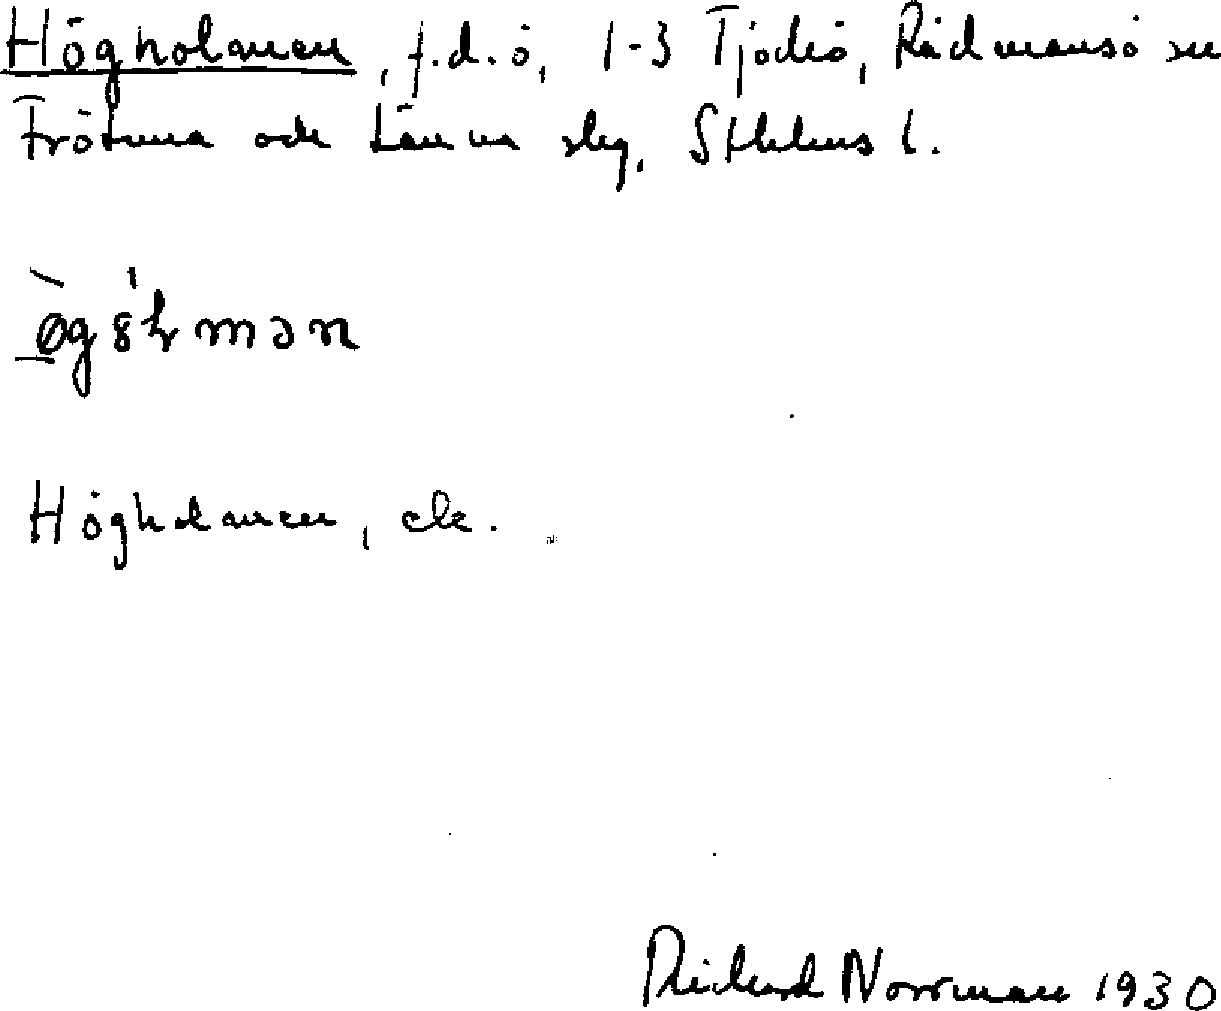 Högholmen, f.d. ö, 1-3 Tjockö, Rådmansö sn
Frötuna och Länna slg, Sthlms l.
ø̀gɵ́ɫmən
Högholmen, ek.
Richard Norrman 1930